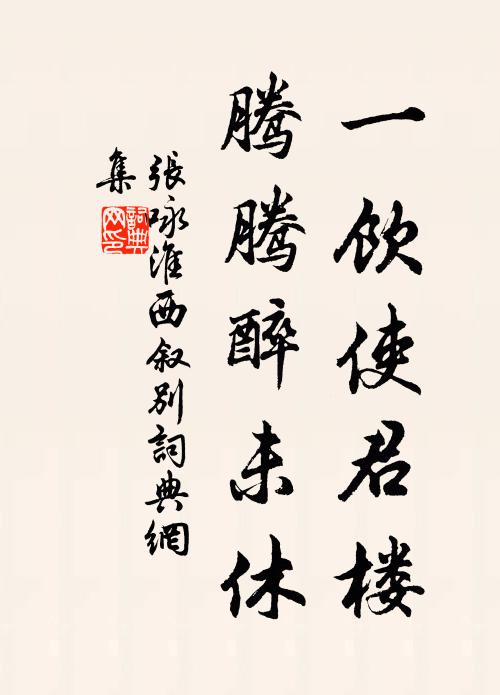 一飲使君楼
騰騰醉未休
張咏淮西叙别詞典網
集
詞典网印